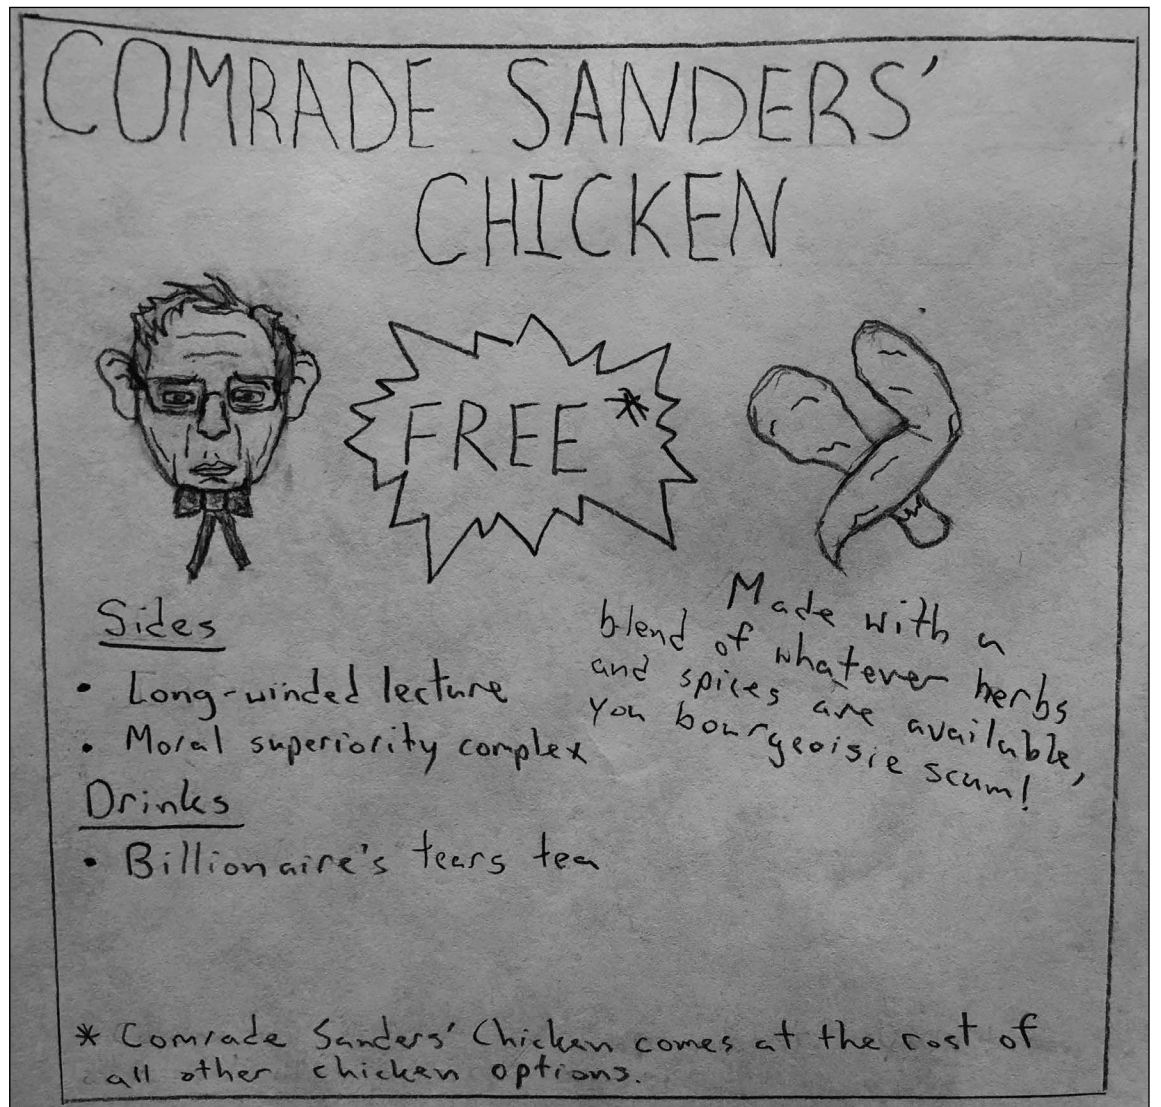 COMRADE SANDERS'
CHICKEN
FREE*
Sides
• Long-winded lecture
• Moral superiority complex
Drinks
• Billionaire's tears tea
Made with a
blend of whatever herbs
and spices are available,
you bourgeoisie scum!
* Comrade Sanders' Chicken comes at the cost of
all other chicken options.